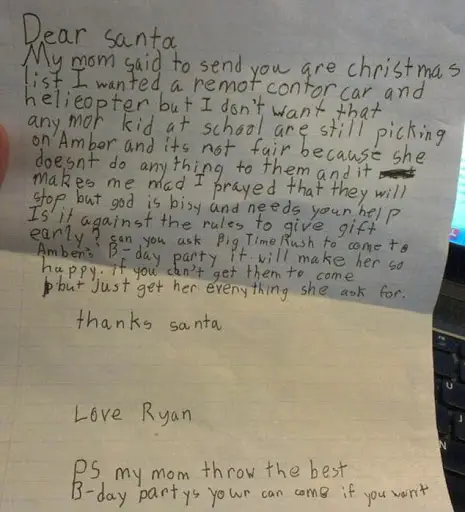 Dear santa
My mom said to send you are christmas
list I wanted a remot contor car and
helieopter but I don't want that
any mor kid at school are still picking
on Amber and its not fair because she
doesnt do any thing to them and it
makes me mad I prayed that they will
stop but god is bisy and needs your help
Is it against the rules to give gift
early? Can you ask Big Time Rush to come to
Amber's B-day party it will make her so
happy. if you can't get them to come
but just get her everything she ask for.
thanks santa
Love Ryan
PS my mom throw the best
B-day partys your can come if you want